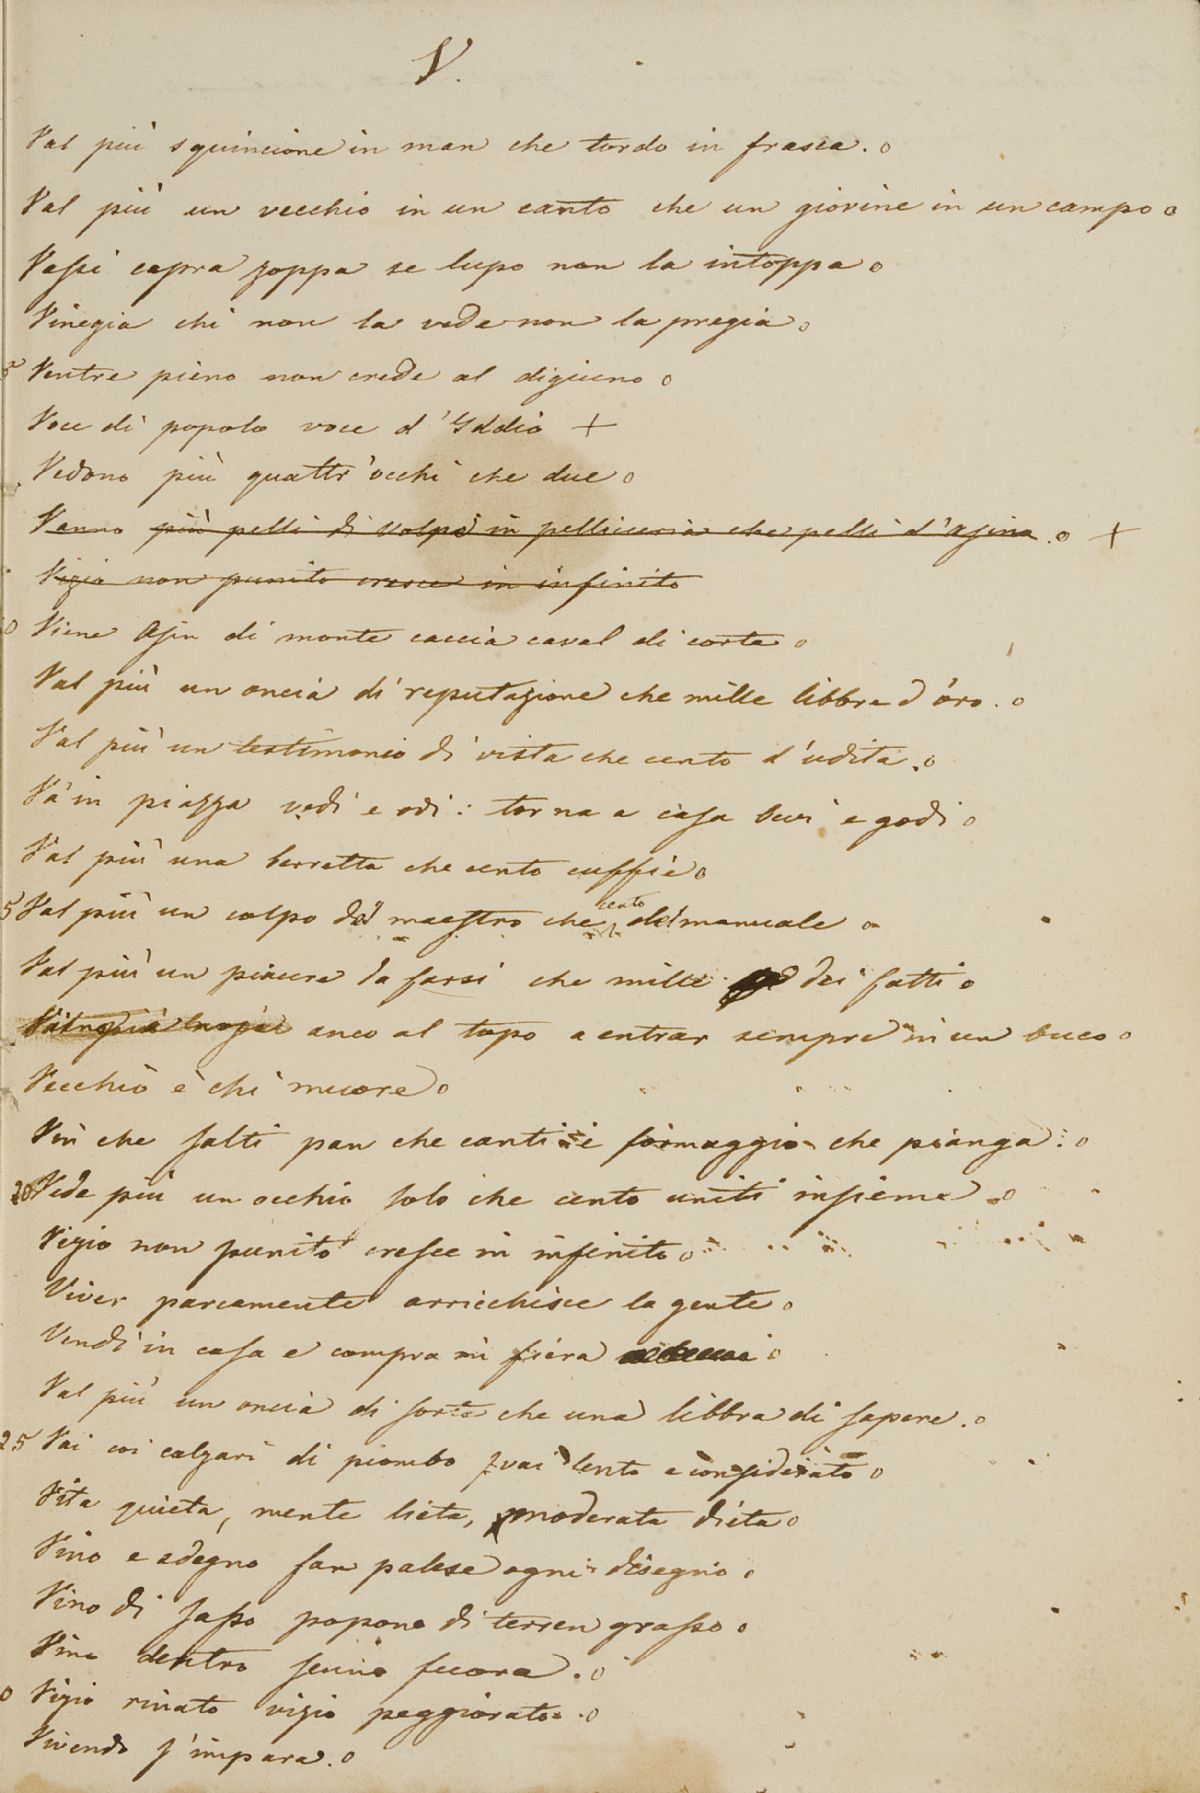 V.
Val più squincione in man che tordo in frasca. o
Val più un vecchio in un canto che un giovine in un campo o
Vassi capra zoppa se lupo non la intoppa o
Vinegia chi non la vede non la pregia o
5 Ventre pieno non crede al digiuno o
Voce di popolo voce d'Iddio +
Vedono più quattr'occhi che due o
Vanno più pelli di volpe in pellicceria che pelli d'asino. o +
Vizio non punito cresce in infinito
0 Viene asin di monte caccia caval di corte o
Val più un oncia di reputazione che mille libbre d'oro. o
Val più un testimonio di vista che cento d'udita. o
Và in piazza vedi e odi: torna a casa bevi e godi o
Val più una berretta che cento cuffie o
5 Val più un colpo del maestro che cento del manuale o
Val più un piacere da farsi che mille dei fatti o
anco al topo a entrar sempre in un buco o
Vecchio è chi muore o
Vin che salti pan che canti e formaggio che pianga. o
20 Vede più un occhio solo che cento uniti insieme o
Vizio non punito cresce in infinito o
Viver parcamente arricchisce la gente o
Vendi in casa e compra in fiera o
Val più un oncia di sorte che una libbra di sapere. o
25 Vai coi calzari di piombo vai lento e considerato o
Vita quieta, mente lieta, moderata dieta o
Vino e sdegno fan palese ogni disegno o
Vino di sasso popone di terren grasso o
Vino dentro senno fuora. o
0 Vizio rinato vizio peggiorato. o
Vivendo s'impara. o